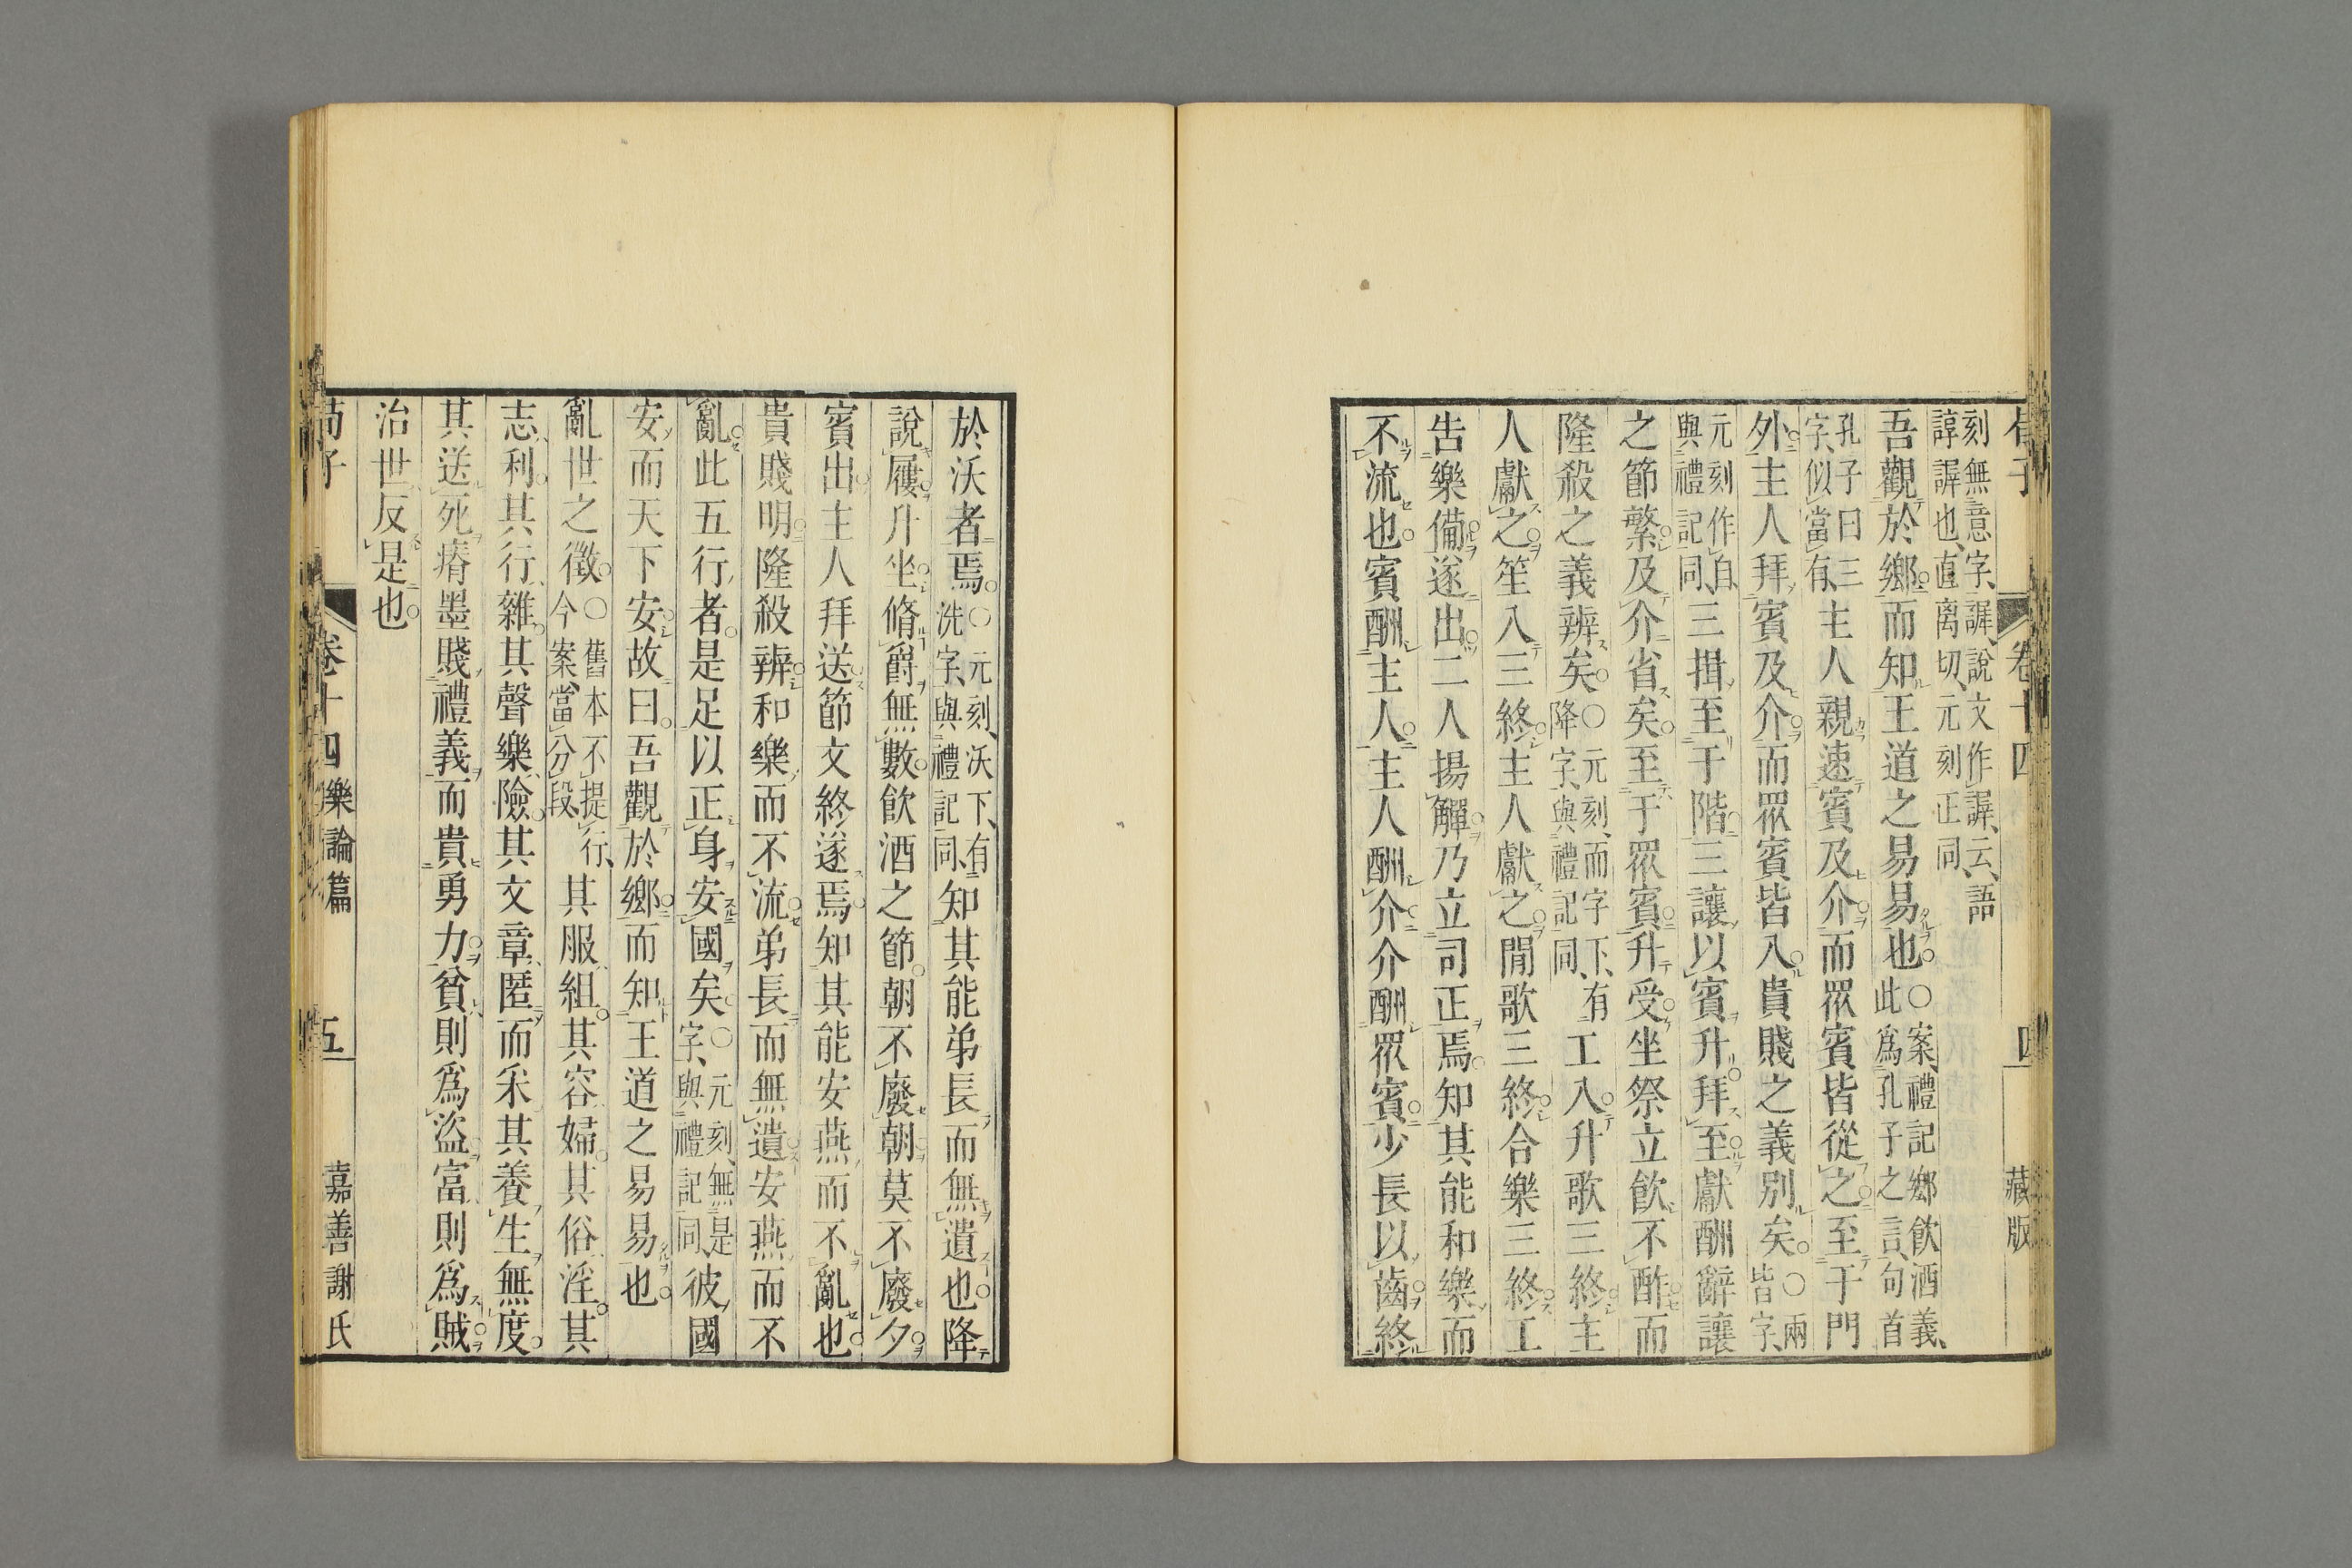 荀子 卷十四 四 藏版
刻無意字、諢、說文作諢、云、語
諄諢也、直离切、元刻正同、
吾觀於鄉而知王道之易易也○案、禮記鄉飲酒義、此爲孔子之言、句首
孔子曰三字、似當有、主人親速賓及介而眾賓皆從之至于門
外主人拜賓及介而眾賓皆入貴賤之義別矣○兩皆字、
元刻作自、與禮記同、三揖至于階三讓以賓升拜至獻酬辭讓
之節繁及介省矣至于眾賓升受坐祭立飲不酢而
隆殺之義辨矣○元刻、而字下、有降字、與禮記同、工入升歌三終主
人獻之笙入三終主人獻之閒歌三終合樂三終工
告樂備遂出二人揚觶乃立司正焉知其能和樂而
不流也賓酬主人主人酬介介酬眾賓少長以齒終
於沃者焉○元刻、沃下、有洗字、與禮記同、知其能弟長而無遺也降
說屨升坐脩爵無數飲酒之節朝不廢朝莫不廢夕
賓出主人拜送節文終遂焉知其能安燕而不亂也
貴賤明隆殺辨和樂而不流弟長而無遺安燕而不
亂此五行者是足以正身安國矣○元刻、無是字、與禮記同、彼國
安而天下安故曰吾觀於鄉而知王道之易易也
亂世之徵○舊本不提行、今案、當分段、其服組其容婦其俗淫其
志利其行雜其聲樂險其文章匿而采其養生無度
其送死瘠墨賤禮義而貴勇力貧則爲盜富則爲賊
治世反是也
荀子 卷十四 樂論篇 五 嘉善謝氏